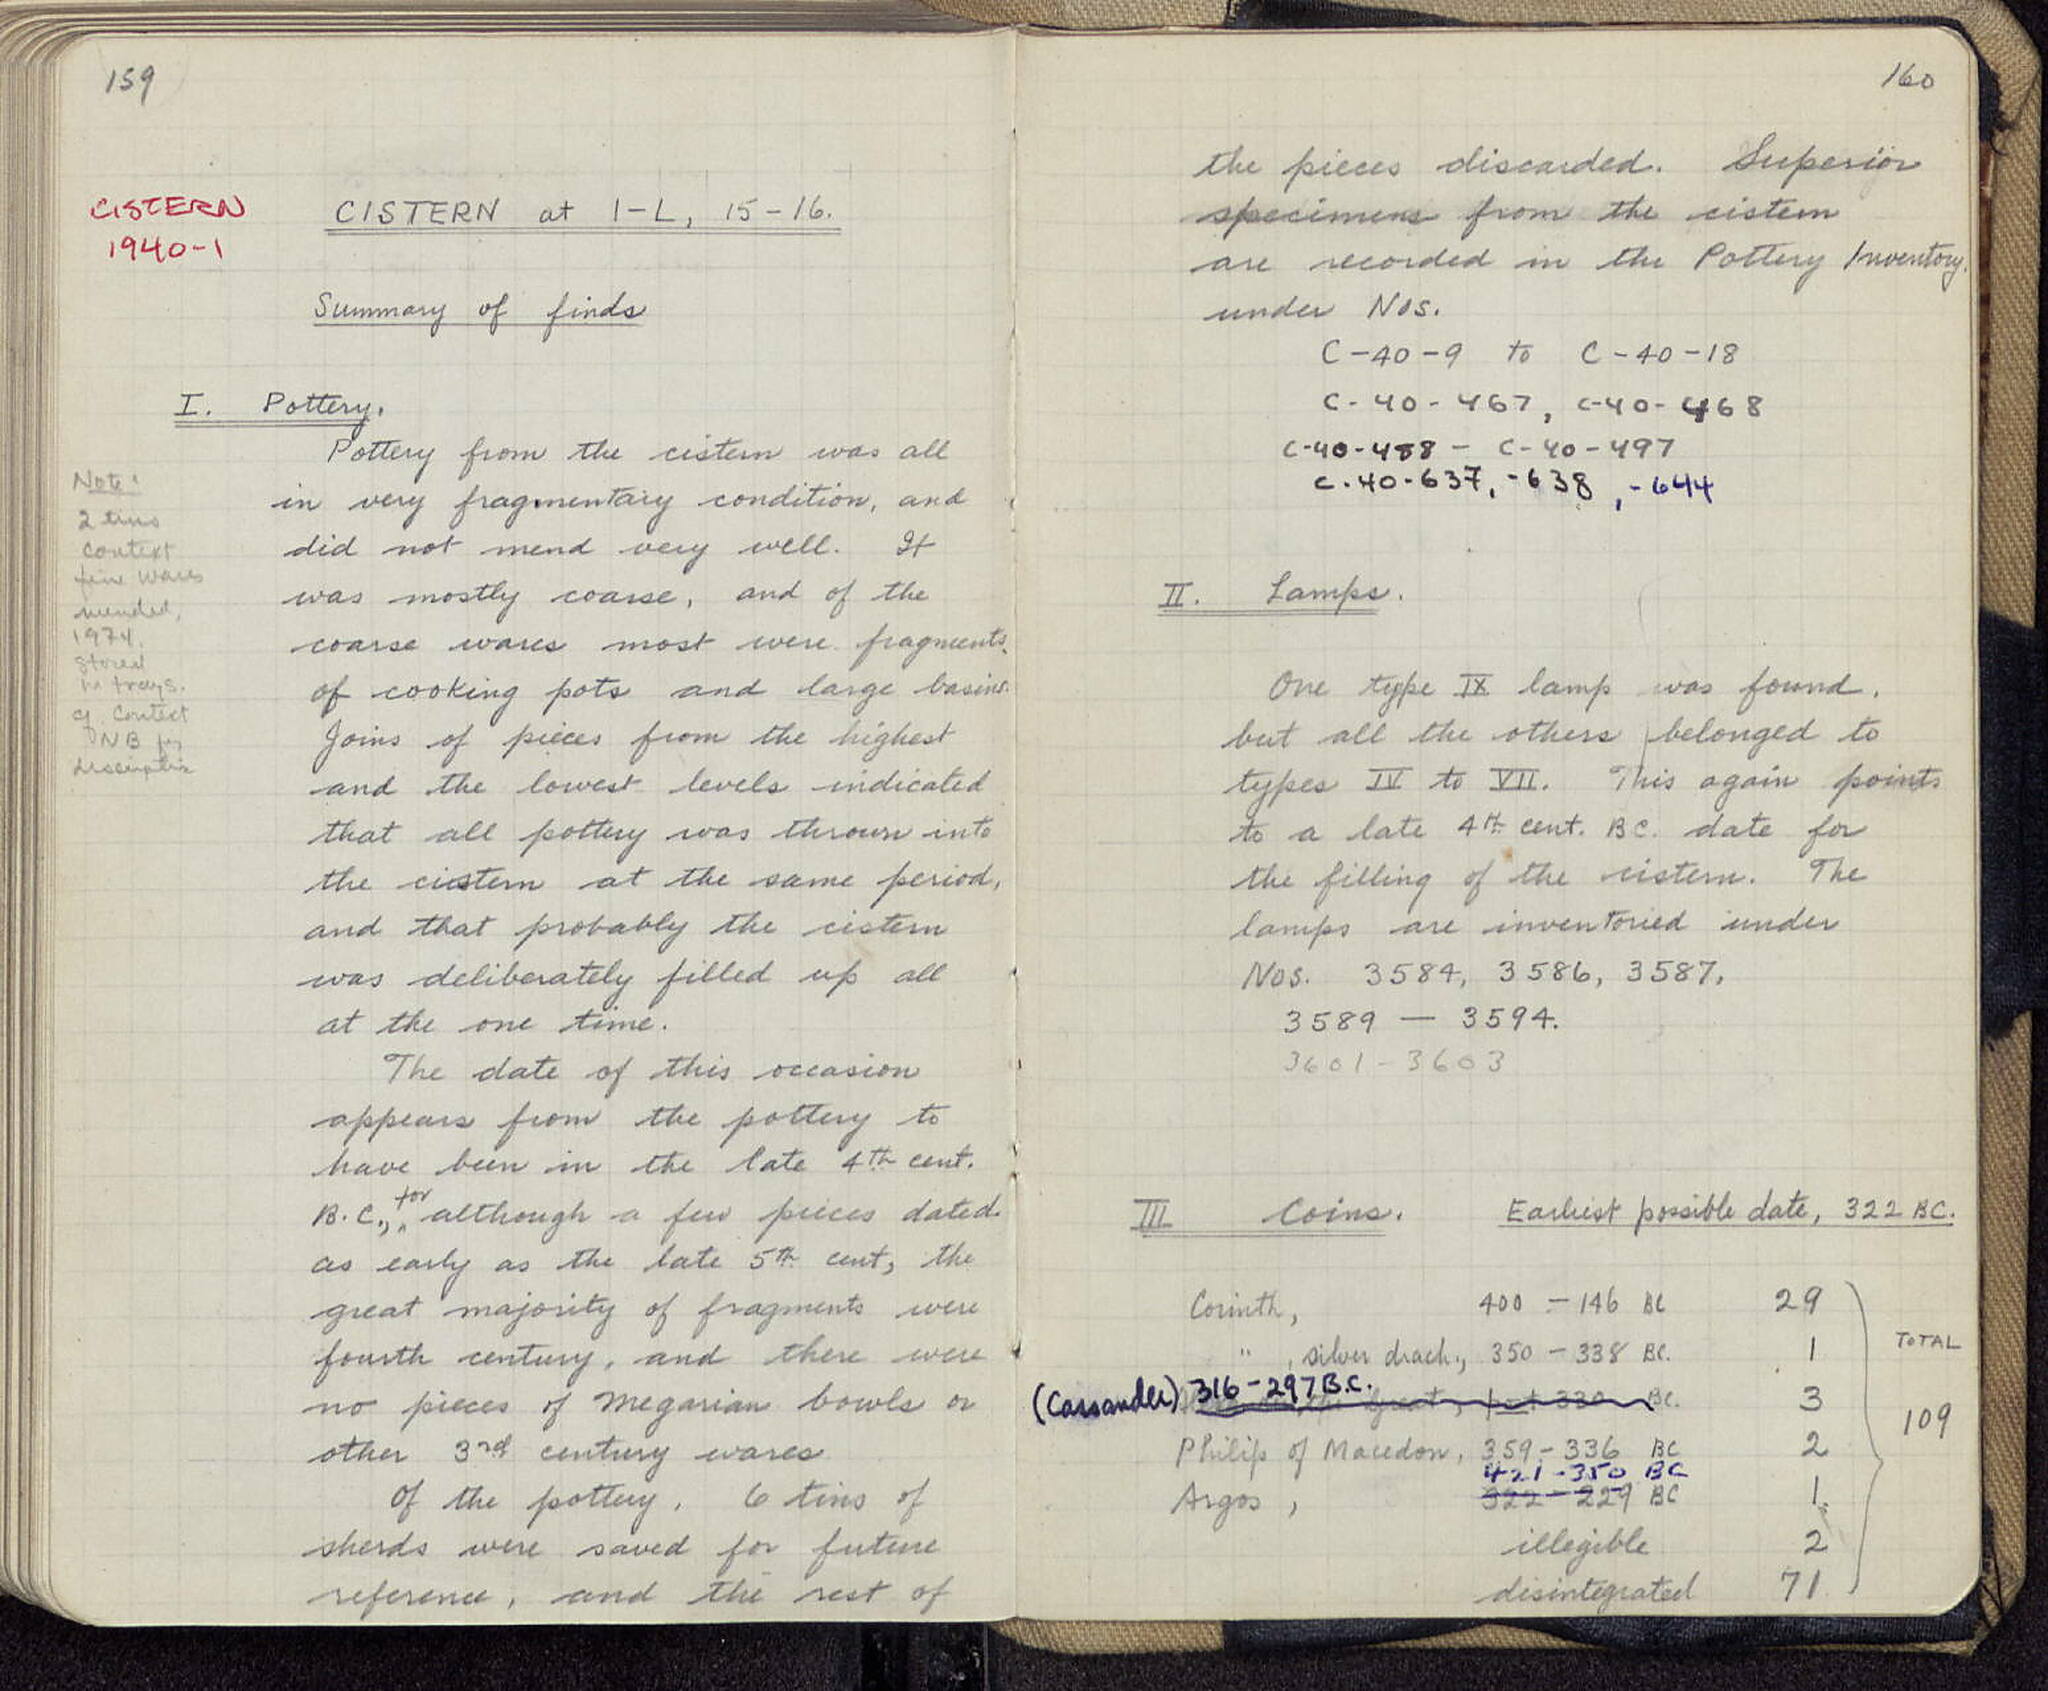 159
CISTERN
1940-1
CISTERN at I-L, 15-16.
Summary of finds
I. Pottery.
Pottery from the cistern was all
in very fragmentary condition, and
did not mend very well. It
was mostly coarse, and of the
coarse wares most were fragments
of cooking pots and large basins.
Joins of pieces from the highest
and the lowest levels indicated
that all pottery was thrown into
the cistern at the same period,
and that probably the cistern
was deliberately filled up all
at the one time.
The date of this occasion
appears from the pottery to
have been in the late 4th cent.
B.C., for although a few pieces dated
as early as the late 5th cent, the
great majority of fragments were
fourth century, and there were
no pieces of Megarian bowls or
other 3rd century wares
Of the pottery, 6 tins of
sherds were saved for future
reference, and the rest of
Note:
2 tins
context
fine wares
mended,
1974.
stored
in trays.
cf. Context
NB for
description
160
the pieces discarded. Superior
specimens from the cistern
are recorded in the Pottery Inventory
under Nos.
C-40-9 to C-40-18
C-40-467, C-40-468
C-40-488 - C-40-497
C-40-637, -638, -644
II. Lamps.
One type IX lamp was found,
but all the others belonged to
types IV to VII. This again points
to a late 4th cent. BC. date for
the filling of the cistern. The
lamps are inventoried under
Nos. 3584, 3586, 3587,
3589 — 3594.
3601 - 3603
III Coins. Earliest possible date, 322 BC.
Corinth, 400 - 146 BC 29
" , silver drach., 350 - 338 BC. 1
(Cassander) 316-297 B.C. Great, 330 BC. 3
Philip of Macedon, 359 - 336 BC 2
421-350 BC
Argos, 322 - 229 BC 1
illegible 2
disintegrated 71
TOTAL
109